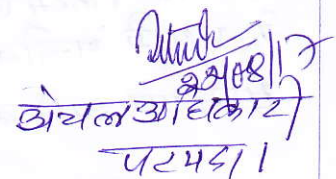 22/08/17
अंचल अधिकारी
पटमदा।